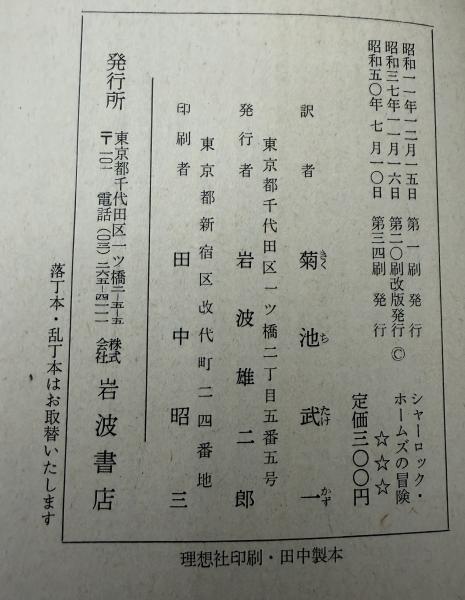 昭和一一年一二月一五日 第一刷発行
昭和三七年一一月一六日 第二〇刷改版発行 ©
昭和五〇年七月一〇日 第三四刷発行
シャーロック・
ホームズの冒険
☆☆☆
定価三〇〇円
訳者 菊池武一
きくちたけかず
東京都千代田区一ツ橋二丁目五番五号
発行者 岩波雄二郎
東京都新宿区改代町二四番地
印刷者 田中昭三
発行所
東京都千代田区一ツ橋二ノ五ノ五
〒一〇一 電話(〇三)二六五ノ四一一一
株式会社 岩波書店
落丁本・乱丁本はお取替いたします
理想社印刷・田中製本